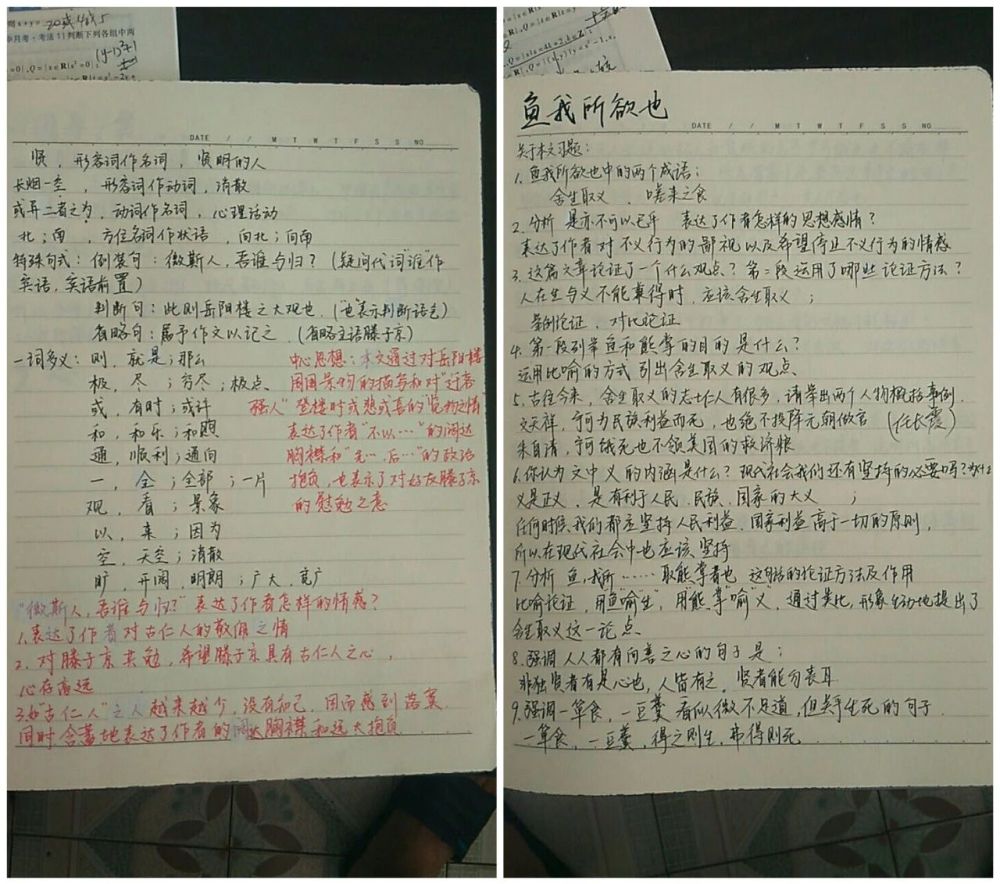 DATE / / M T W T F S S NO
贤，形容词作名词，贤明的人
长烟一空，形容词作动词，消散
或异二者之为，动词作名词，心理活动
北；南，方位名词作状语，向北；向南
特殊句式：倒装句：微斯人，吾谁与归？（疑问代词谁作
宾语，宾语前置）
判断句：此则岳阳楼之大观也（也表示判断语气）
省略句：属予作文以记之（省略主语滕子京）
一词多义：则，就是；那么
极，尽；穷尽；极点
或，有时；或许
和，和乐；和煦
通，顺利；通向
一，全；全部；一片
观，看；景象
以，来；因为
空，天空；消散
旷，开阔，明朗；广大，宽广
中心思想：本文通过对岳阳楼
周围景物的描写和对"迁客
骚人"登楼时或悲或喜的"览物之情
表达了作者"不以……"的阔达
胸襟和"先…后…"的政治
抱负，也表示了对好友滕子京
的慰勉之意
"微斯人，吾谁与归？"表达了作者怎样的情感？
1.表达了作者对古仁人的敬佩之情
2.对滕子京共勉，希望滕子京具有古仁人之心，
心存高远
3.如"古仁人"之人越来越少，没有知己，因而感到落寞
同时含蓄地表达了作者的阔达胸襟和远大抱负
鱼我所欲也
DATE / / M T W T F S S NO
关于本文习题：
1.鱼我所欲也中的两个成语：
舍生取义、嗟来之食
2.分析 是亦不可以已乎 表达了作者怎样的思想感情？
表达了作者对不义行为的鄙视以及希望停止不义行为的情感
3.这篇文章论证了一个什么观点？第二段运用了哪些论证方法？
人在生与义不能兼得时，应该舍生取义；
举例论证、对比论证
4.第一段列举鱼和熊掌的目的是什么？
运用比喻的方式引出舍生取义的观点
5.古往今来，舍生取义的志士仁人有很多，请举出两个人物概括事例.
文天祥，宁可为民族利益而死，也绝不投降元朝做官（任长霞）
朱自清，宁饿死也不领美国的救济粮
6.你认为文中义的内涵是什么？现代社会我们还有坚持的必要吗？为什么
义是正义，是有利于人民、民族、国家的大义；
任何时候，我们都应坚持人民利益、国家利益高于一切的原则，
所以在现代社会中也应该坚持
7.分析 鱼，我所……取熊掌者也 这句话的论证方法及作用
比喻论证，用鱼"喻生"，用熊掌"喻义，通过类比，形象生动地提出了
舍生取义这一论点
8.强调人人都有向善之心的句子是：
非独贤者有是心也，人皆有之，贤者能勿丧耳
9.强调一箪食，一豆羹看似微不足道，但关乎生死的句子
一箪食，一豆羹，得之则生，弗得则死